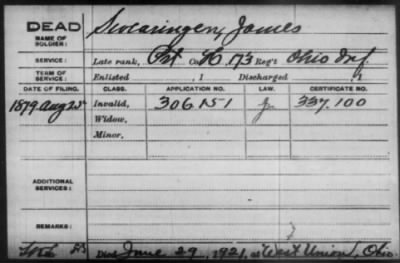 DEAD
NAME OF SOLDIER: Swearingen, James
SERVICE: Late rank, Pvt Co. H, 173 Reg't Ohio Inf.
TERM OF SERVICE: Enlisted , 1 Discharged , 1
DATE OF FILING. CLASS. APPLICATION NO. LAW. CERTIFICATE NO.
1879 Aug 25 Invalid, 306151 337.100
Widow,
Minor,
ADDITIONAL SERVICES:
REMARKS:
Died June 29, 1921, at West Union, Ohio